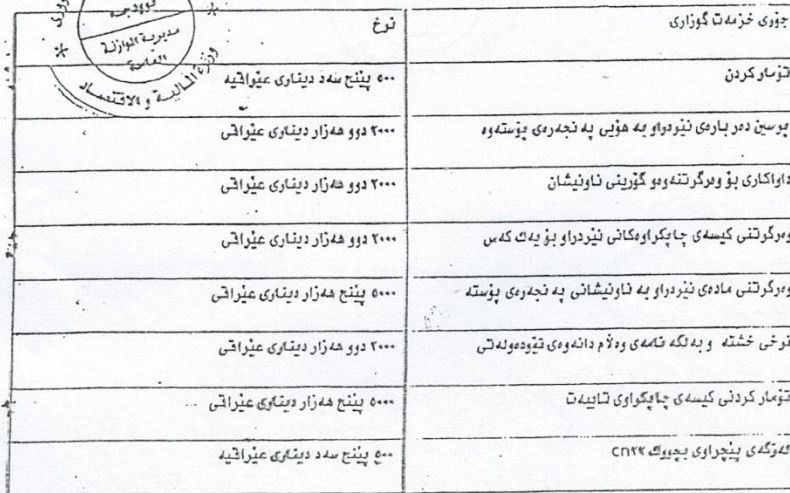 بوودجە
مديرية الموازنة
العامة
وزارة المالية والاقتصاد
جۆری خزمەت گوزاری
نرخ
تۆمار کردن
٥٠٠ پێنج سەد دیناری عێراقیە
پرسین دەر بارەی نێردراو بە هۆیی پە نجەرەی پۆستەوە
٢٠٠٠ دوو هەزار دیناری عێراقی
داواکاری بۆ وەرگرتنەوەو گۆڕینی ناونیشان
٢٠٠٠ دوو هەزار دیناری عێراقی
وەرگرتنی کیسەی چاپکراوەکانی نێردراو بۆ یەک کەس
٢٠٠٠ دوو هەزار دیناری عێراقی
وەرگرتنی مادەی نێردراو بە ناونیشانی پە نجەرەی پۆستە
٥٠٠٠ پێنج هەزار دیناری عێراقی
نرخی خشتە و بەلگە نامەی وەڵام دانەوەی نێودەوڵەتی
٢٠٠٠ دوو هەزار دیناری عێراقی
تۆمار کردنی کیسەی چاپکراوی تایبەت
٥٠٠٠ پێنج هەزار دیناری عێراقی
پێچراوی بچووک cn٢٢
٥٠٠ پێنج سەد دیناری عێراقیە